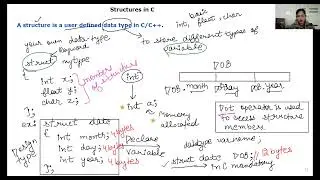 Structures in C
A structure is a user defined data type in C/C++.
basic
int, float, char
your own data type
keyword
to store different types of
variable
struct mytype
{
int x;
float y;
char z;
};
members of structure
int
int a;
Memory allocated
DOB.
DOB.month
DOB.year
Dot operator is used
To access structure
members
ex:
struct date
{
int month; 4 bytes
int day; 4 bytes
int year; 4 bytes
};
Design
type
Declare
Variable
datatype varname;
struct date DOB; 12 bytes
in C mandatory